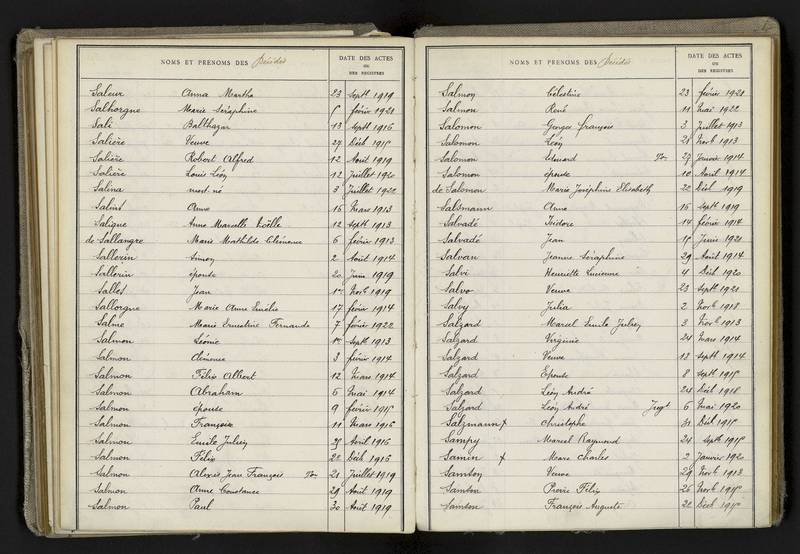 NOMS ET PRENOMS DES Décédés
DATE DES ACTES
OU
DES REGISTRES
Saleur Anna Martha 23 Septb 1919
Salhorgne Marie Séraphine 5 février 1921
Sali Balthazar 13 Septb 1916
Salière Veuve 27 Décb 1915
Salière Robert Alfred 12 Août 1919
Salière Louis Léon 12 Juillet 1920
Salina mort né 3 Juillet 1922
Anne 16 Mars 1913
Saligne Anne Marcelle Noëlle 12 Septb 1913
de Sallangre Marie Mathilde Clémence 6 février 1913
Sallerin Simon 2 Août 1914
Sallerin épouse 20 Juin 1919
Salles Jean Novb 1919
Sallorgne Marie Anne Emélie 17 février 1914
Salme Marie Ernestine Fernande 7 février 1922
Salmon Léonie Septb 1913
Salmon Clémence 3 février 1914
Salmon Félix Albert 12 Mars 1914
Salmon Abraham 6 Mai 1914
Salmon épouse 9 février 1915
Salmon François 11 Mars 1916
Salmon Emile Julien 25 Avril 1916
Salmon Félix 22 Décb 1916
Salmon Alexis Jean François Von 21 Juillet 1919
Salmon Anne Constance 29 Août 1919
Salmon Paul 30 Août 1919
NOMS ET PRENOMS DES Décédés
DATE DES ACTES
OU
DES REGISTRES
Salmon Célestine 23 février 1921
Salmon René 11 Mai 1922
Salomon Georges françois 3 Juillet 1913
Salomon Léon 28 Novb 1913
Salomon Edouard Von 27 Janvier 1914
Salomon épouse 10 Avril 1914
de Salomon Marie Joséphine Elisabeth 22 Décb 1919
Salsmann Anna 16 Septb 1919
Salvadé Isidore 14 février 1914
Salvadé Jean 15 Juin 1921
Salvan Jeanne Séraphine 29 Août 1914
Salvi Henriette Lucienne 4 Décb 1920
Salvo Veuve 23 Septb 1921
Salvy Julia 2 Novb 1918
Salzard Marcel Emile 3 Novb 1913
Salzard Virginie 24 Mars 1914
Salzard Veuve 13 Septb 1914
Salzard Epouse 8 Septb 1915
Salzard Léon André 24 Décb 1918
Salzard Léon André Jugt 6 Mai 1920
Salzmann x Christophe 31 Décb 1915
Sampy Marcel Raymond 24 Septb 1915
Samin x Marc Charles 2 Janvier 1920
Samson Veuve 29 Novb 1913
Samson Pierre Félix 26 Novb 1915
Samson François Auguste 22 Décb 1915